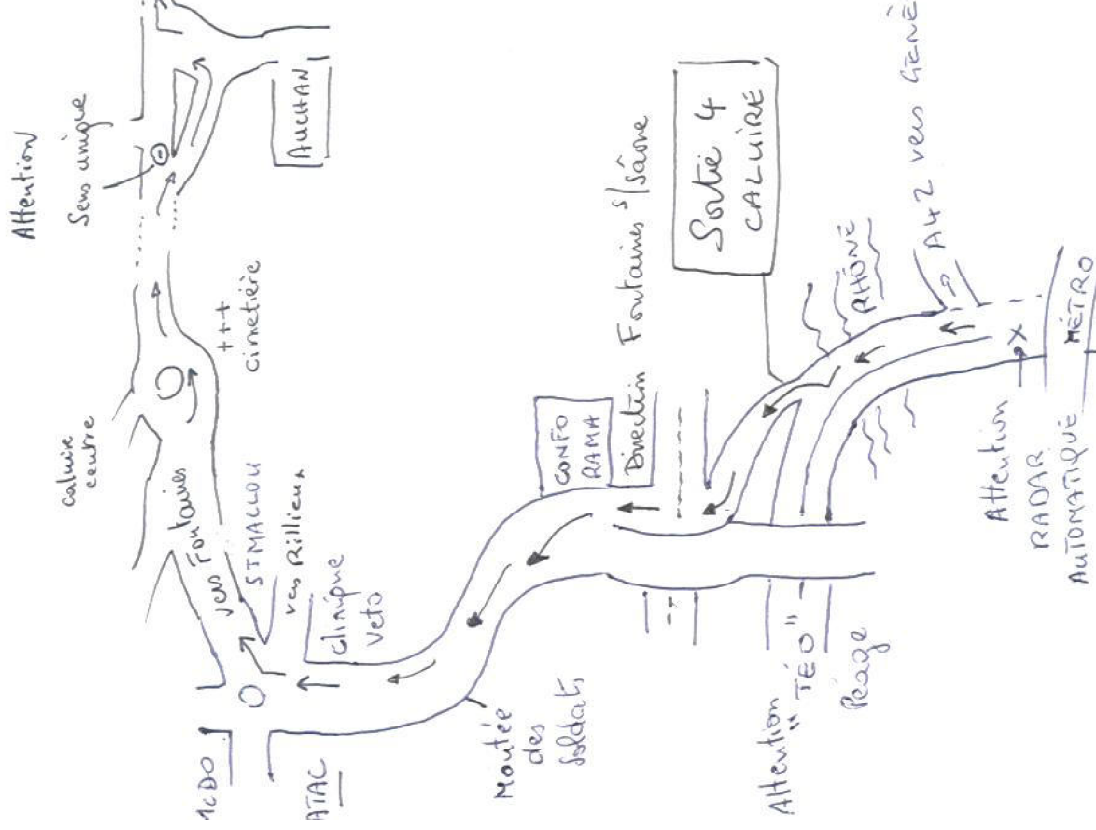 Attention
Sens unique
AUCHAN
caluire
centre
+++
cimetière
vers Fontaines
ST MALLOU
vers Rillieux
Clinique
Veto
McDO
ATAC
Montée
des
Soldats
CONFO
RAMA
Direction Fontaines s/Saône
Sortie 4
CALUIRE
RHÔNE
A42 vers GENÈ
Attention
"TÉO"
Péage
Attention
RADAR
AUTOMATIQUE
MÉTRO